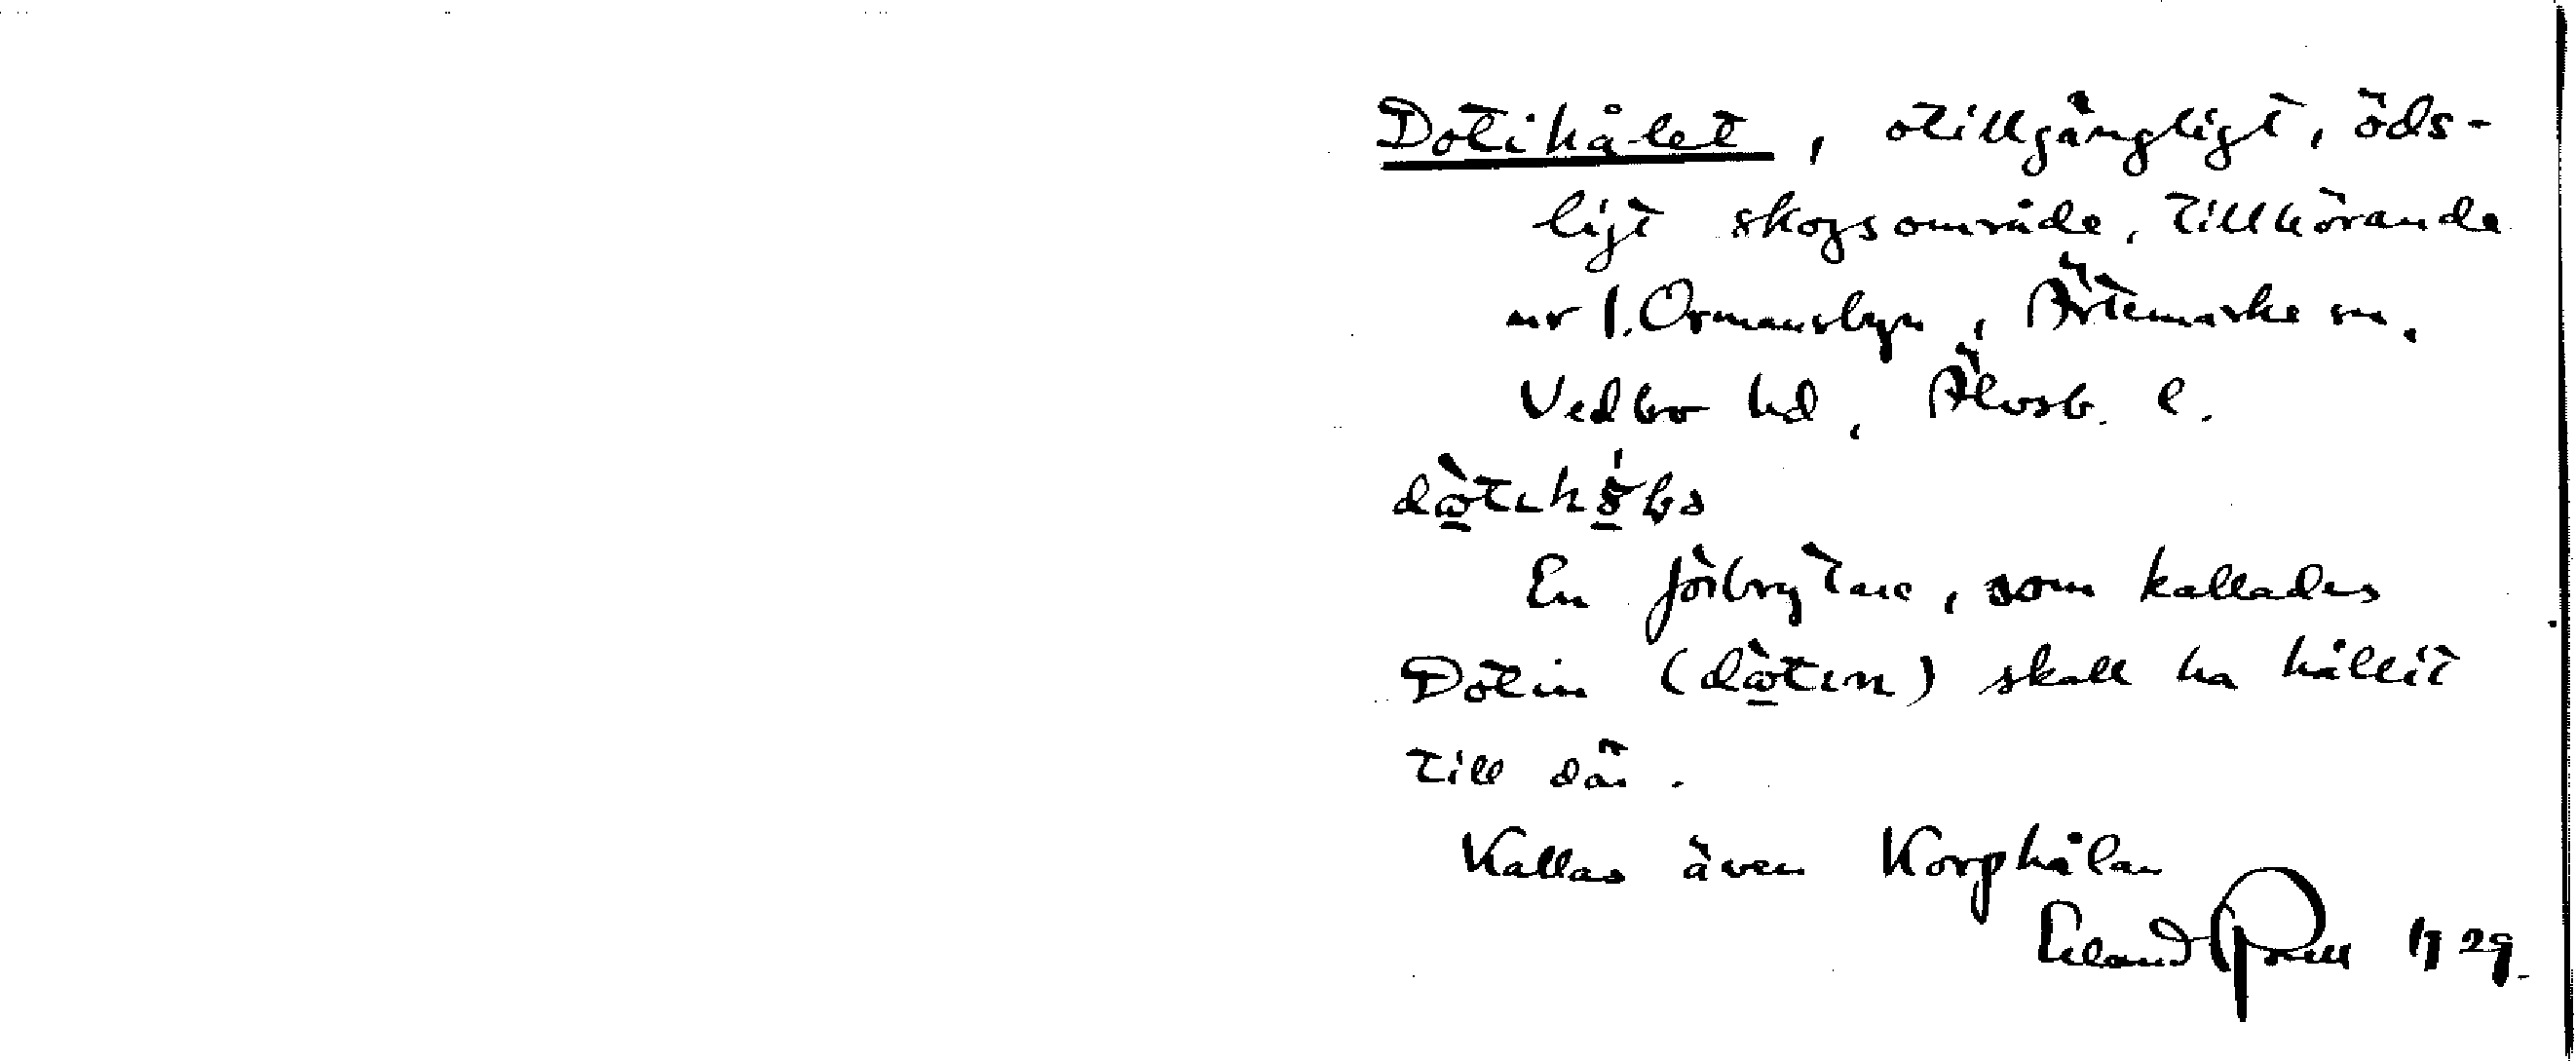 Dotihålet, otillgängligt, öds-
ligt skogsområde, tillhörande
nr 1. Ormansbyn, Ärtemarks sn.
Vedbo hd, Älvsb. l.
En förbrytare, som kallades
Dotin (dὼtın) skall ha hållit
till där.
Kallas även Korphålan
Erland 1929.